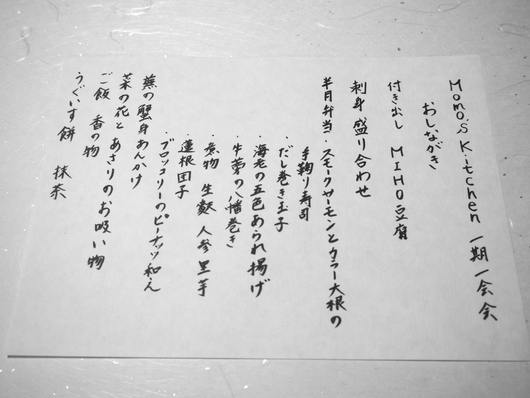 Momo's Kitchen 一期一会会
おしながき
付き出し MIHO豆腐
刺身盛り合わせ
半月弁当・スモークサーモンとカラー大根の
手鞠り寿司
・だし巻き玉子
・海老の五色あられ揚げ
・牛蒡の八幡巻き
・煮物 生麩 人参 里芋
・蓮根団子
・ブロッコリーのピーナッツ和え
蕪の蟹身あんかけ
菜の花とあさりのお吸い物
ご飯 香の物
うぐいす餅 抹茶